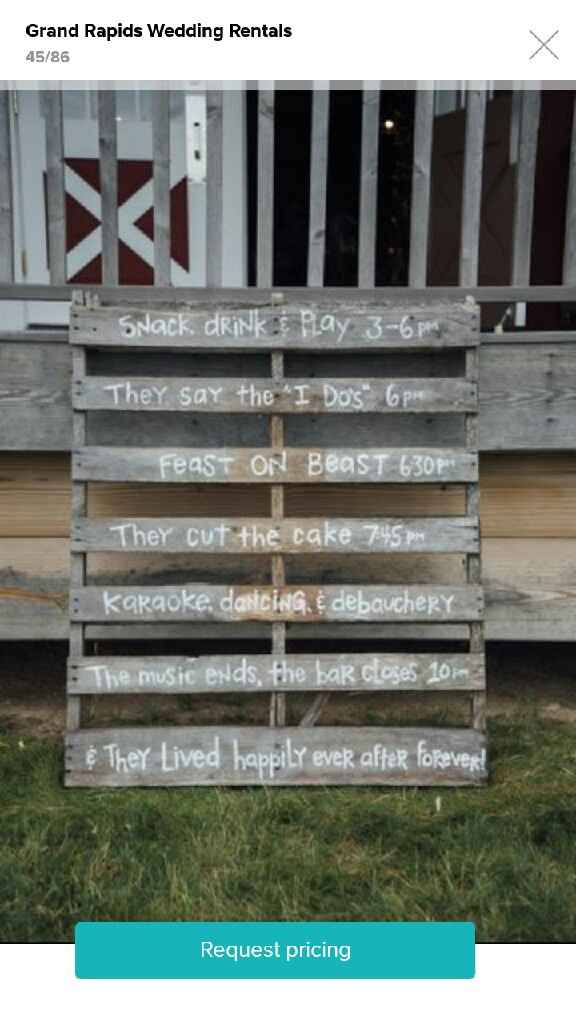 Grand Rapids Wedding Rentals
45/86
SNack, dRiNk & Play 3-6 pm
They say the "I Do's" 6 pm
Feast ON Beast 630 pm
They cut the cake 745 pm
Karaoke, dancing, & debauchery
The music ends, the bar closes 10 pm
& They Lived happily ever after forever!
Request pricing